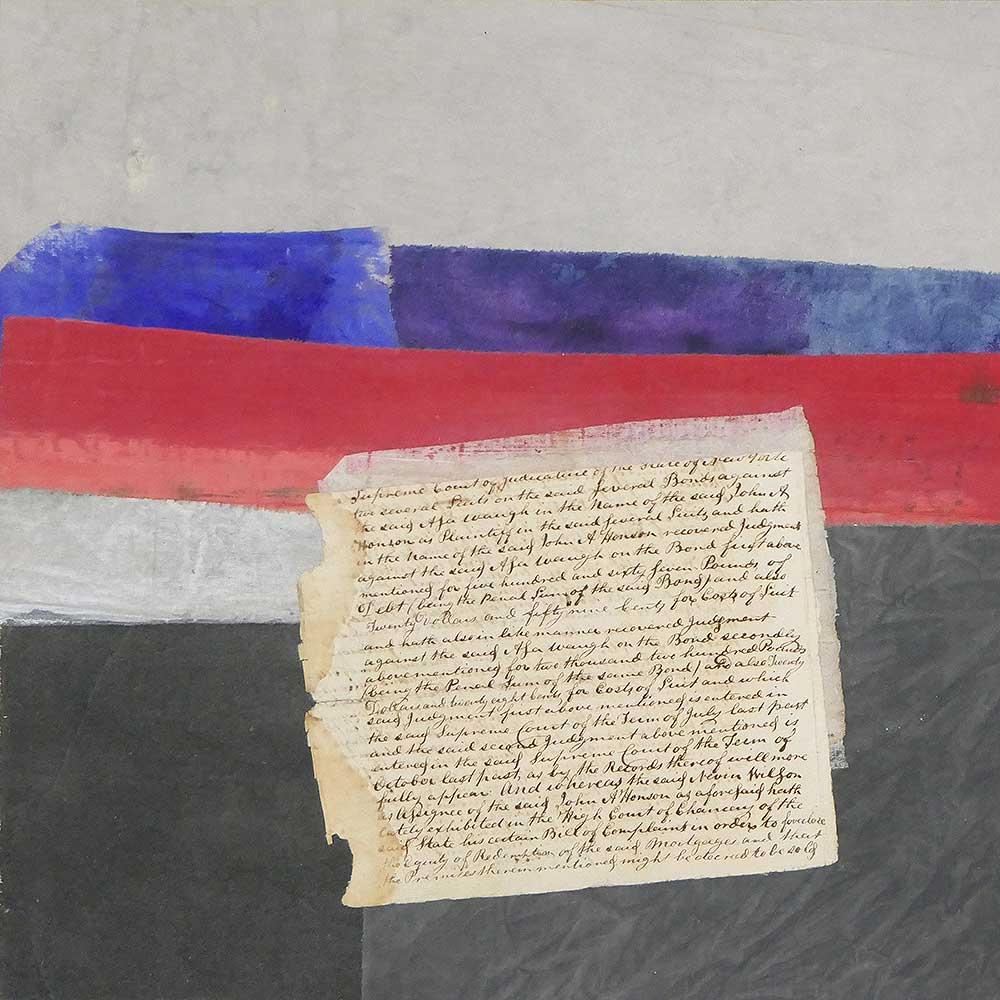 Supreme Court of Judicature of the State of New York
two several Suits on the said several Bonds against
the said Asa Waugh in the Name of the said John A
Honson as Plaintiff in the said several Suits and hath
in the Name of the said John A Honson recovered Judgment
against the said Asa Waugh on the Bond first above
mentioned for five hundred and sixty seven Pounds of
Debt (being the Penal Sum of the said Bond) and also
Twenty Dollars and fifty nine Cents for Costs of Suit
and hath also in like manner recovered Judgment
against the said Asa Waugh on the Bond secondly
above mentioned for two thousand two hundred Pounds
(being the Penal Sum of the same Bond) and also Twenty
Dollars and twenty eight Cents for Costs of Suit and which
said Judgment first above mentioned is entered in
the said Supreme Court of the Term of July last past
and the said second Judgment above mentioned is
entered in the said Supreme Court of the Term of
October last past, as by the Records thereof will more
fully appear. And whereas the said Nevin Wilson
as Assignee of the said John A Honson as aforesaid hath
lately exhibited in the High Court of Chancery of the
said State his certain Bill of Complaint in order to foreclose
the Equity of Redemption of the said Mortgages and that
the Premises therein mentioned might be decreed to be sold